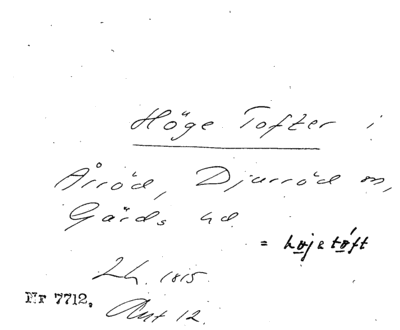 Höge Tofter i
Årröd, Djurröd sn,
Gärds hd
= højetóft
Lh. 1815
Nr 7712, Akt 12.